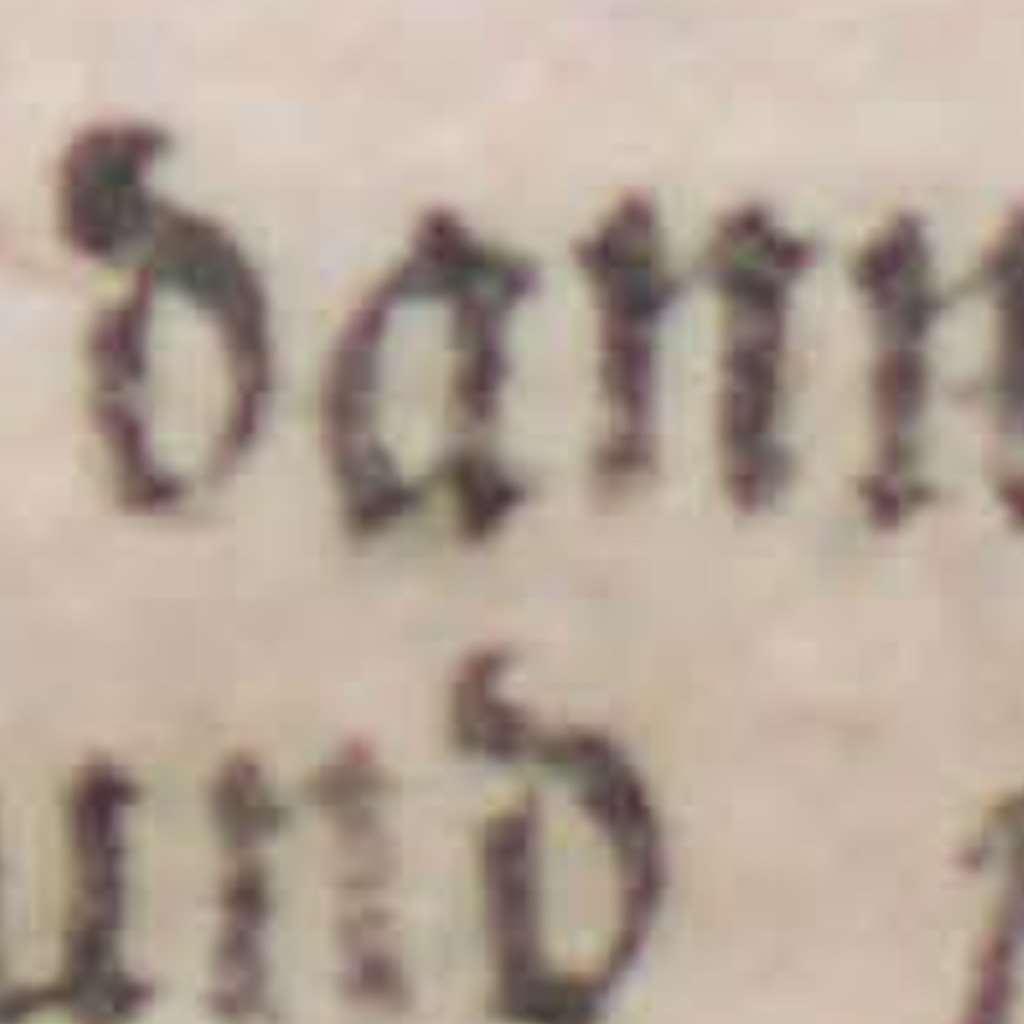 dann
und